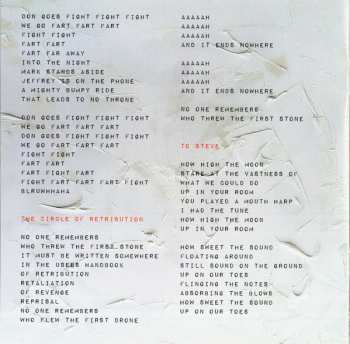 DON GOES FIGHT FIGHT FIGHT
WE GO FART FART FART
FIGHT FIGHT
FART FART
FART FAR AWAY
INTO THE NIGHT
MARK STANDS ASIDE
JEFFREY IS ON THE PHONE
A MIGHTY BUMPY RIDE
THAT LEADS TO NO THRONE
DON GOES FIGHT FIGHT FIGHT
WE GO FART FART FART
DON GOES FIGHT FIGHT FIGHT
WE GO FART FART FART
FIGHT FIGHT
FART FART
FART FIGHT FART
FIGHT FART FART FART FIGHT
BLRUHHHAHA
THE CIRCLE OF RETRIBUTION
NO ONE REMEMBERS
WHO THREW THE FIRST STONE
IT MUST BE WRITTEN SOMEWHERE
IN THE USERS HANDBOOK
OF RETRIBUTION
RETALIATION
OF REVENGE
REPRISAL
NO ONE REMEMBERS
WHO FLEW THE FIRST DRONE
AAAAAH
AAAAAH
AAAAAH
AND IT ENDS NOWHERE
AAAAAH
AAAAAH
AAAAAH
AND IT ENDS NOWHERE
NO ONE REMEMBERS
WHO THREW THE FIRST STONE
TO STEVE
HOW HIGH THE MOON
STARE AT THE VASTNESS OF
WHAT WE COULD DO
UP IN YOUR ROOM
YOU PLAYED A MOUTH HARP
I HAD THE TUNE
HOW HIGH THE MOON
UP IN YOUR ROOM
HOW SWEET THE SOUND
FLOATING AROUND
STILL SOUND ON THE GROUND
UP ON OUR TOES
FLINGING THE NOTES
ABSORBING THE BLOWS
HOW SWEET THE SOUND
UP ON OUR TOES